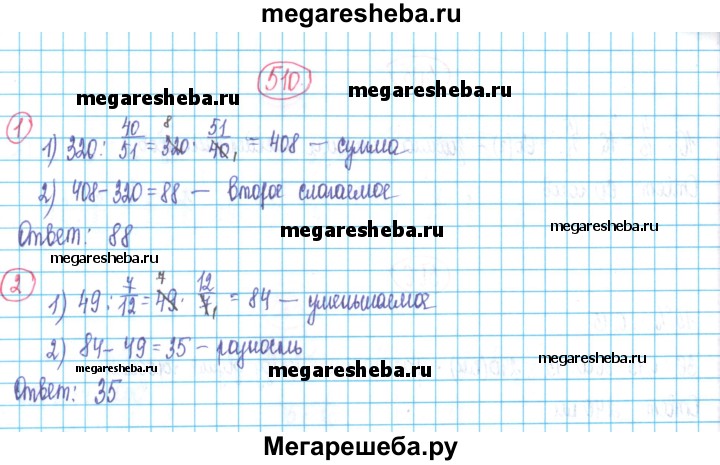 megaresheba.ru
510
megaresheba.ru
megaresheba.ru
1
1) 320 : 40/51 = 320 8 · 51/40 1 = 408 — сумма
2) 408 - 320 = 88 — второе слагаемое
Ответ: 88
megaresheba.ru
megaresheba.ru
2
1) 49 : 7/12 = 49 7 · 12/7 1 = 84 — уменьшаемое
2) 84 - 49 = 35 — разность
megaresheba.ru
megaresheba.ru
megaresheba.ru
Ответ: 35
Мегарешеба.ру